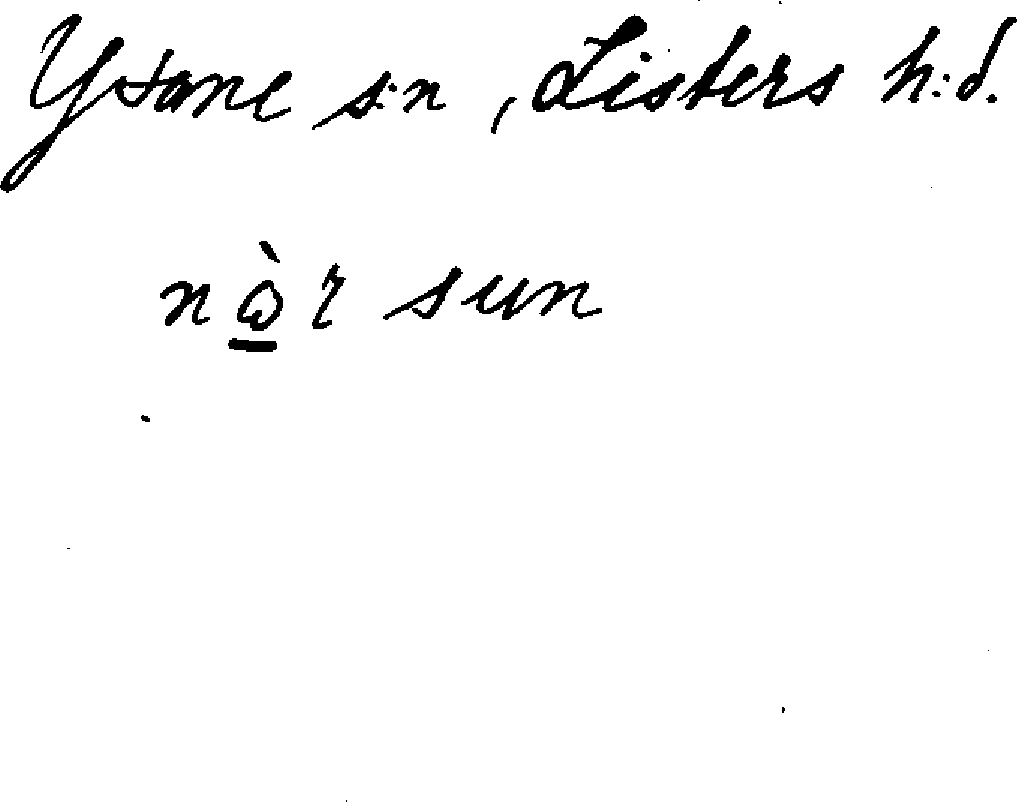 Ysane s:n, Listers h:d.
nὼr sun